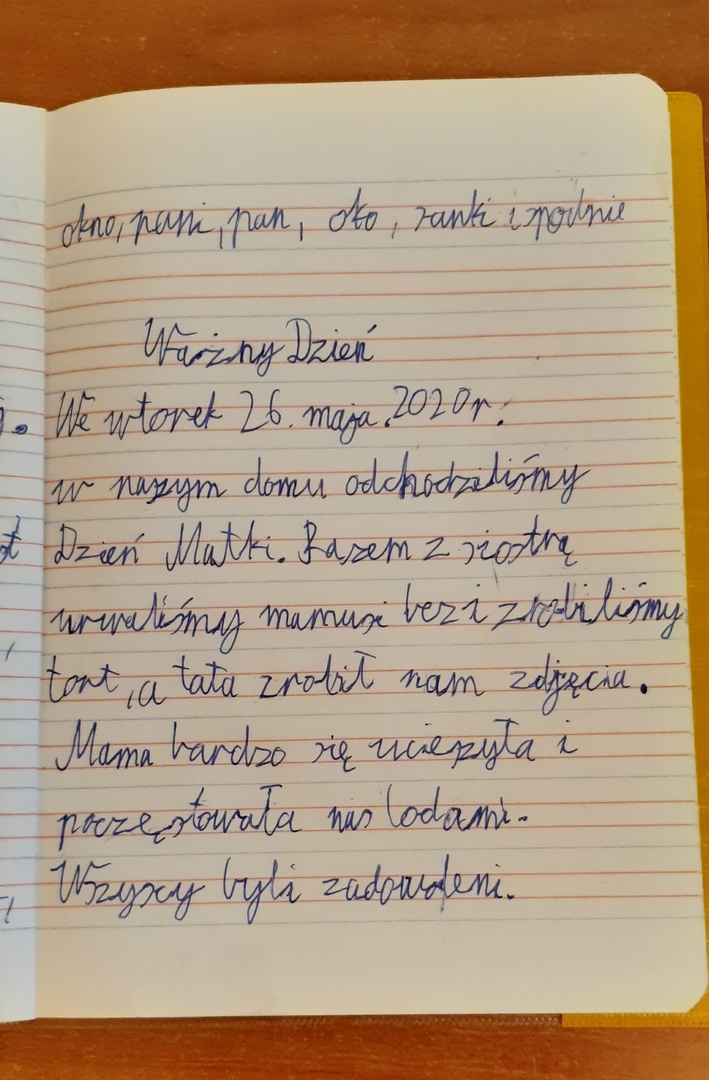 okno, pani, pan, oko, sanki i spodnie
Ważny Dzień
We wtorek 26. maja. 2020r.
w naszym domu odchodziliśmy
Dzień Matki. Razem z siostrą
urwaliśmy mamusi bez i zrobiliśmy
tort, a tata zrobił nam zdjęcia.
Mama bardzo się ucieszyła i
poczęstowała nas lodami.
Wszyscy byli zadowoleni.